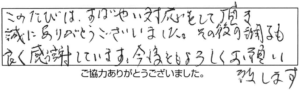 このたびは、すばやい対応をして頂き
誠にありがとうございました。その後の調子も
良く感謝しています。今後ともよろしくお願い
致します
ご協力ありがとうございました。